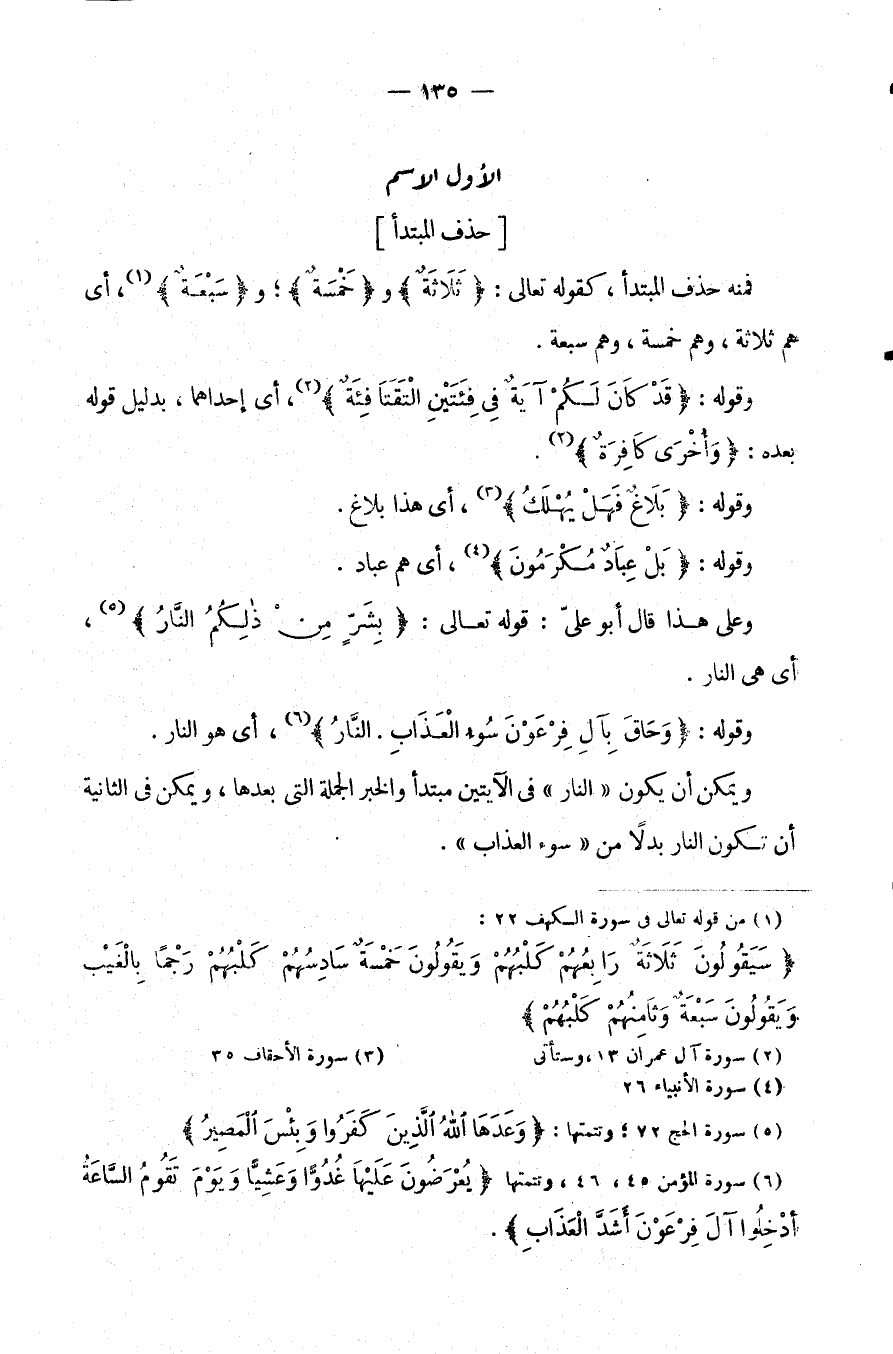 — ١٣٥ —
الأول الاسم
[ حذف المبتدأ ]
فمنه حذف المبتدأ ، كقوله تعالى : ﴿ ثَلَاثَةٌ ﴾ و ﴿ خَمْسَةٌ ﴾ ؛ و ﴿ سَبْعَةٌ ﴾(١)، أى
هم ثلاثة ، وهم خمسة ، وهم سبعة .
وقوله : ﴿ قَدْ كَانَ لَكُمْ آيَةٌ فِي فِئَتَيْنِ الْتَقَتَا فِئَةٌ ﴾(٢)، أى إحداهما ، بدليل قوله
بعده : ﴿ وَأُخْرَى كَافِرَةٌ ﴾(٢) .
وقوله : ﴿ بَلَاغٌ فَهَلْ يُهْلَكُ ﴾(٣) ، أى هذا بلاغ .
وقوله : ﴿ بَلْ عِبَادٌ مُكْرَمُونَ ﴾(٤) ، أى هم عباد .
وعلى هذا قال أبو علىّ : قوله تعالى : ﴿ بِشَرٍّ مِنْ ذَٰلِكُمُ النَّارُ ﴾(٥) ،
أى هى النار .
وقوله : ﴿ وَحَاقَ بِآلِ فِرْعَوْنَ سُوءُ الْعَذَابِ . النَّارُ ﴾(٦) ، أى هو النار .
ويمكن أن يكون « النار » فى الآيتين مبتدأ والخبر الجملة التى بعدها ، ويمكن فى الثانية
أن تكون النار بدلًا من « سوء العذاب » .
(١) من قوله تعالى فى سورة الكهف ٢٢ :
﴿ سَيَقُولُونَ ثَلَاثَةٌ رَابِعُهُمْ كَلْبُهُمْ وَيَقُولُونَ خَمْسَةٌ سَادِسُهُمْ كَلْبُهُمْ رَجْمًا بِالْغَيْبِ
وَيَقُولُونَ سَبْعَةٌ وَثَامِنُهُمْ كَلْبُهُمْ ﴾
(٢) سورة آل عمران ١٣ ، وستأتى (٣) سورة الأحقاف ٣٥
(٤) سورة الأنبياء ٢٦
(٥) سورة الحج ٧٢ ؛ وتتمتها : ﴿ وَعَدَهَا ٱللهُ ٱلَّذِينَ كَفَرُوا وَبِئْسَ ٱلْمَصِيرُ ﴾
(٦) سورة المؤمن ٤٥ ، ٤٦ ، وتتمتها ﴿ يُعْرَضُونَ عَلَيْهَا غُدُوًّا وَعَشِيًّا وَيَوْمَ تَقُومُ السَّاعَةُ
أَدْخِلُوا آلَ فِرْعَوْنَ أَشَدَّ الْعَذَابِ ﴾ .